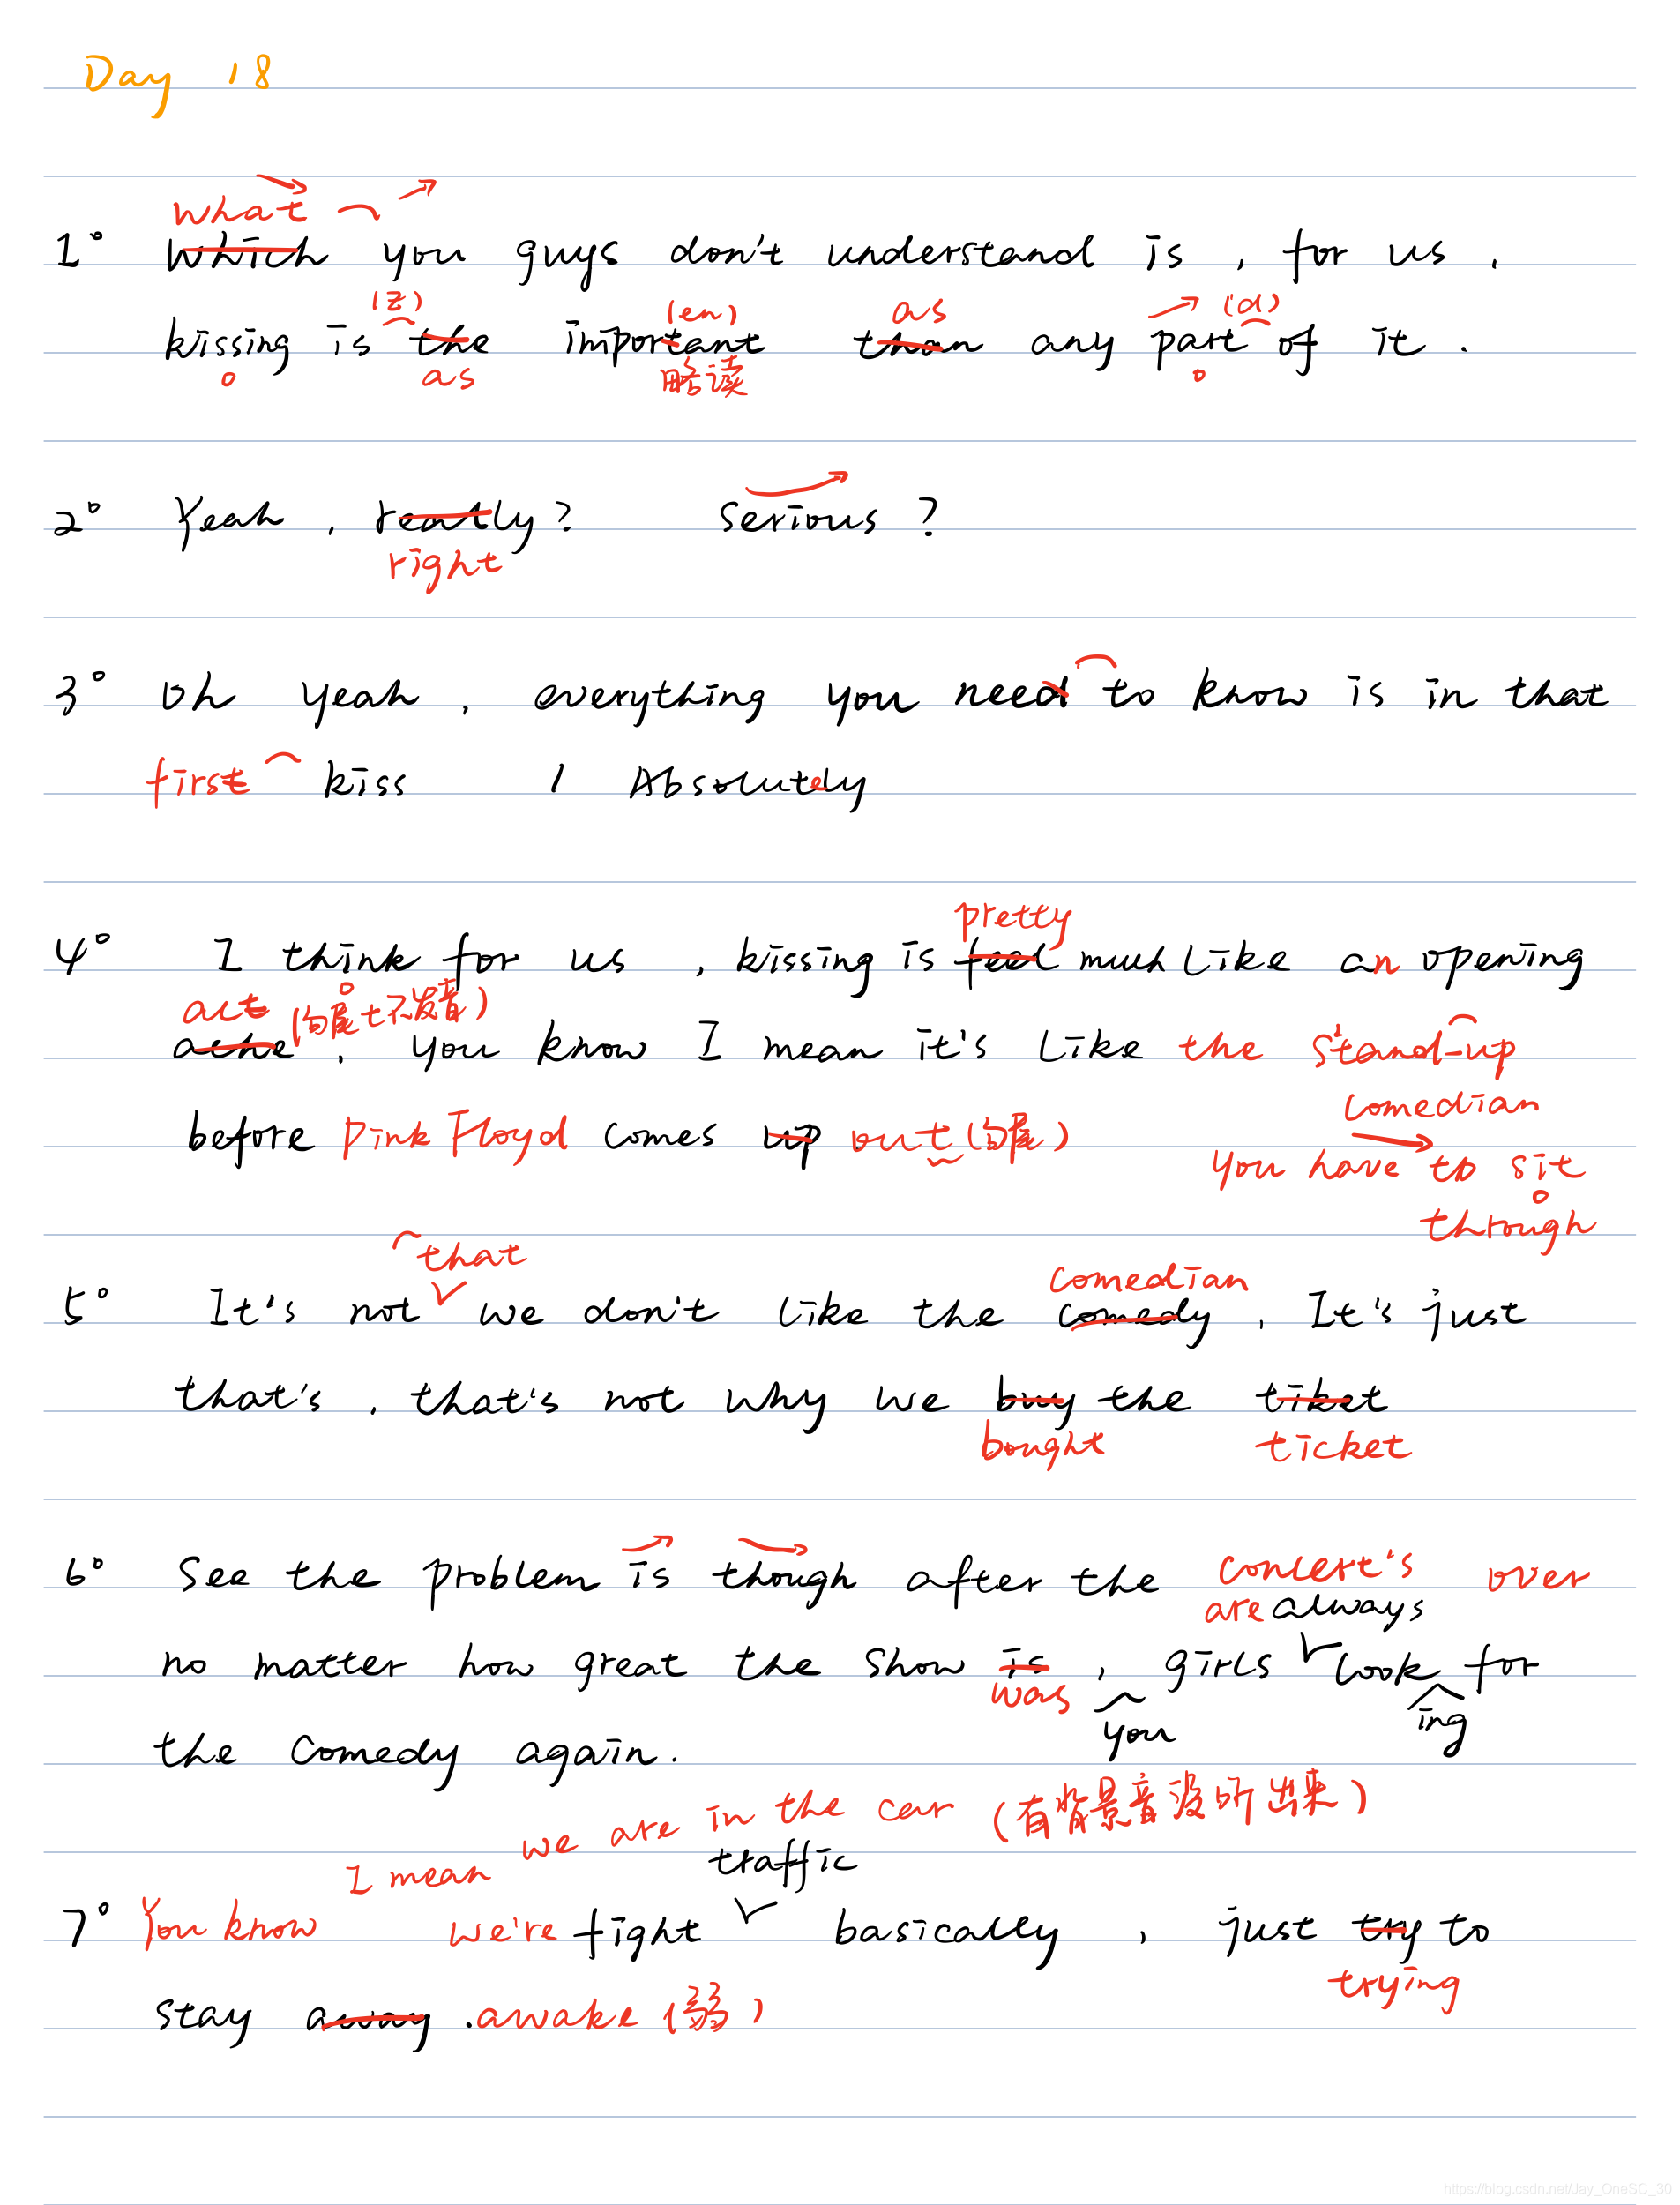 Day 18
what
1° which you guys don't understand is , for us ,
(z) (en) as (d)
kissing is the important than any part of it .
as 略读
2° Yeah , really ? Serious ?
right
3° Oh yeah , everything you need to know is in that
first kiss / Absolutely
pretty
4° I think for us , kissing is feel much like an opening
act (句尾t不发音)
ache , you know I mean it's like the stand-up
comedian
before Pink Floyd comes up out (句尾)
you have to sit
through
that
comedian
5° It's not we don't like the comedy , It's just
that's , that's not why we buy the tiket
bought ticket
6° See the problem is though after the concert's over
are always
no matter how great the show is , girls look for
was you ing
the comedy again .
I mean we are in the car (有背景音没听出来)
traffic
7° You know we're fight basically , just try to
trying
stay away . awake (弱)
https://blog.csdn.net/Jay_OneSC_30